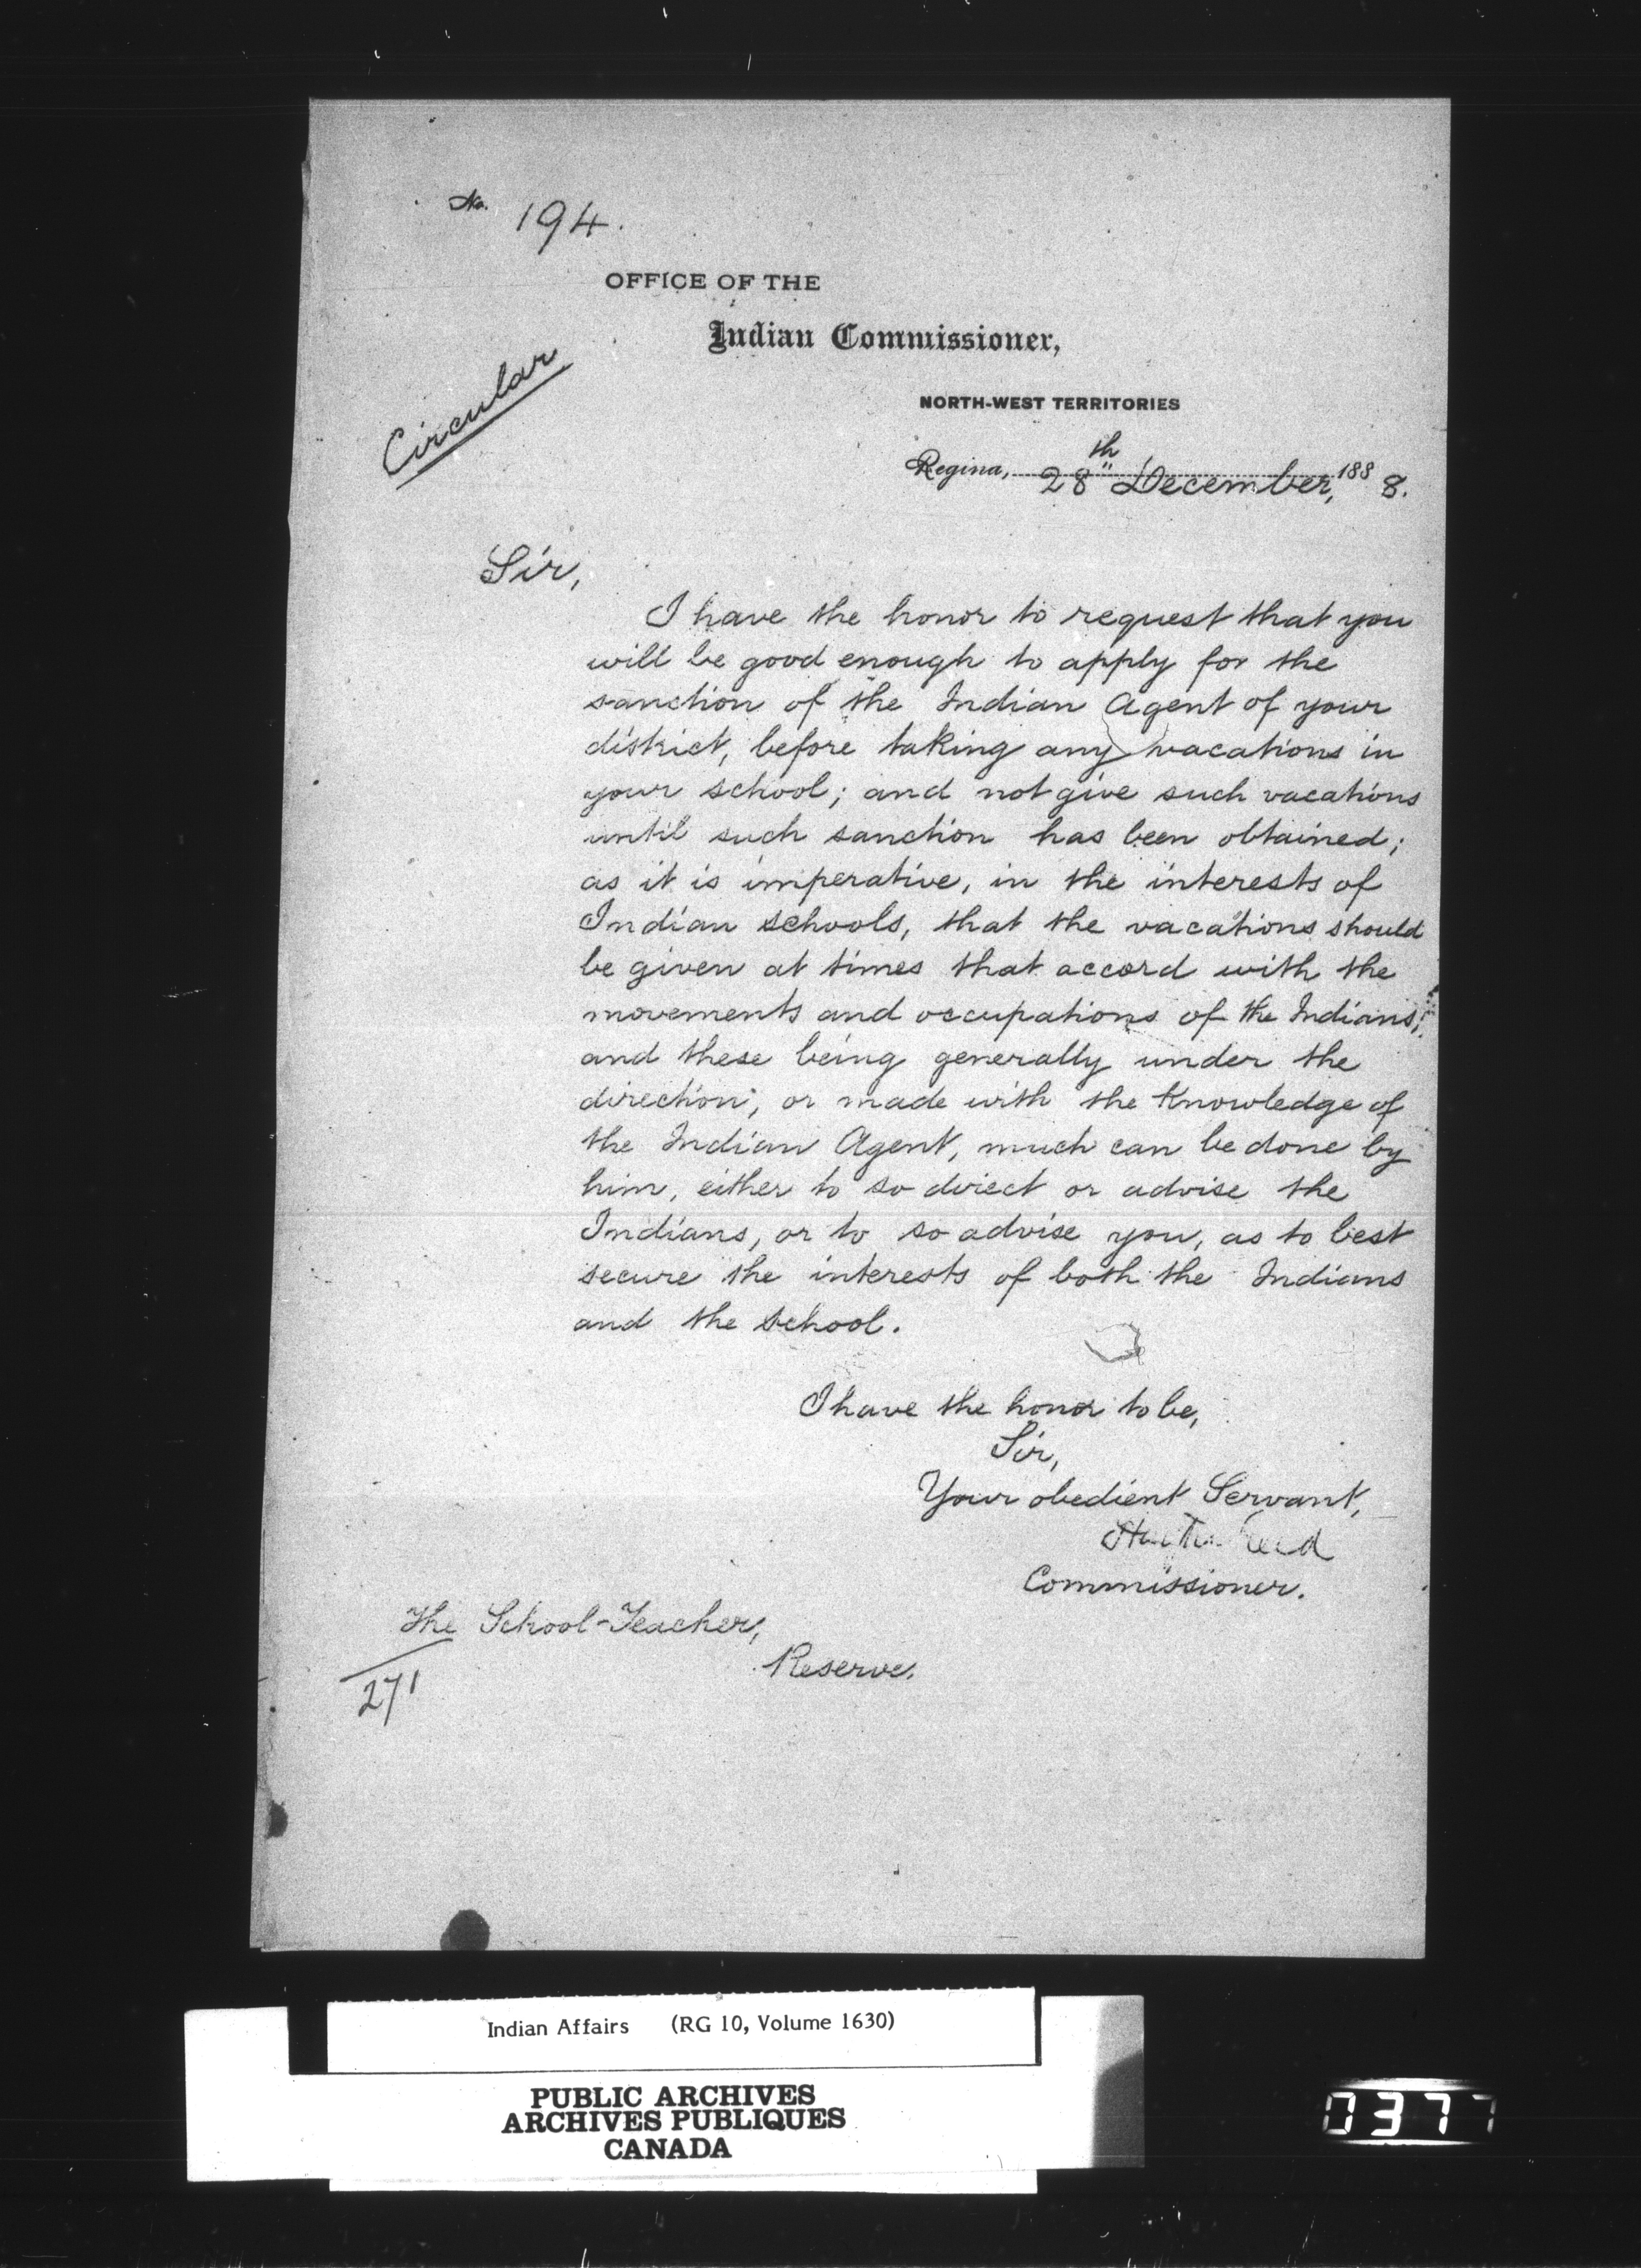 No. 194.
OFFICE OF THE
Indian Commissioner,
NORTH-WEST TERRITORIES
Circular
Regina, 28th December, 1888.
Sir,
I have the honor to request that you
will be good enough to apply for the
sanction of the Indian Agent of your
district, before taking any vacations in
your school; and not give such vacations
until such sanction has been obtained;
as it is imperative, in the interests of
Indian schools, that the vacations should
be given at times that accord with the
movements and occupations of the Indians;
and these being generally under the
direction, or made with the knowledge of
the Indian Agent, much can be done by
him, either to so direct or advise the
Indians, or to so advise you, as to best
secure the interests of both the Indians
and the school.
I have the honor to be,
Sir,
Your obedient Servant,
Hayter Reed
Commissioner.
The School-Teacher,
Reserve.
271
Indian Affairs (RG 10, Volume 1630)
PUBLIC ARCHIVES
ARCHIVES PUBLIQUES
CANADA
0377